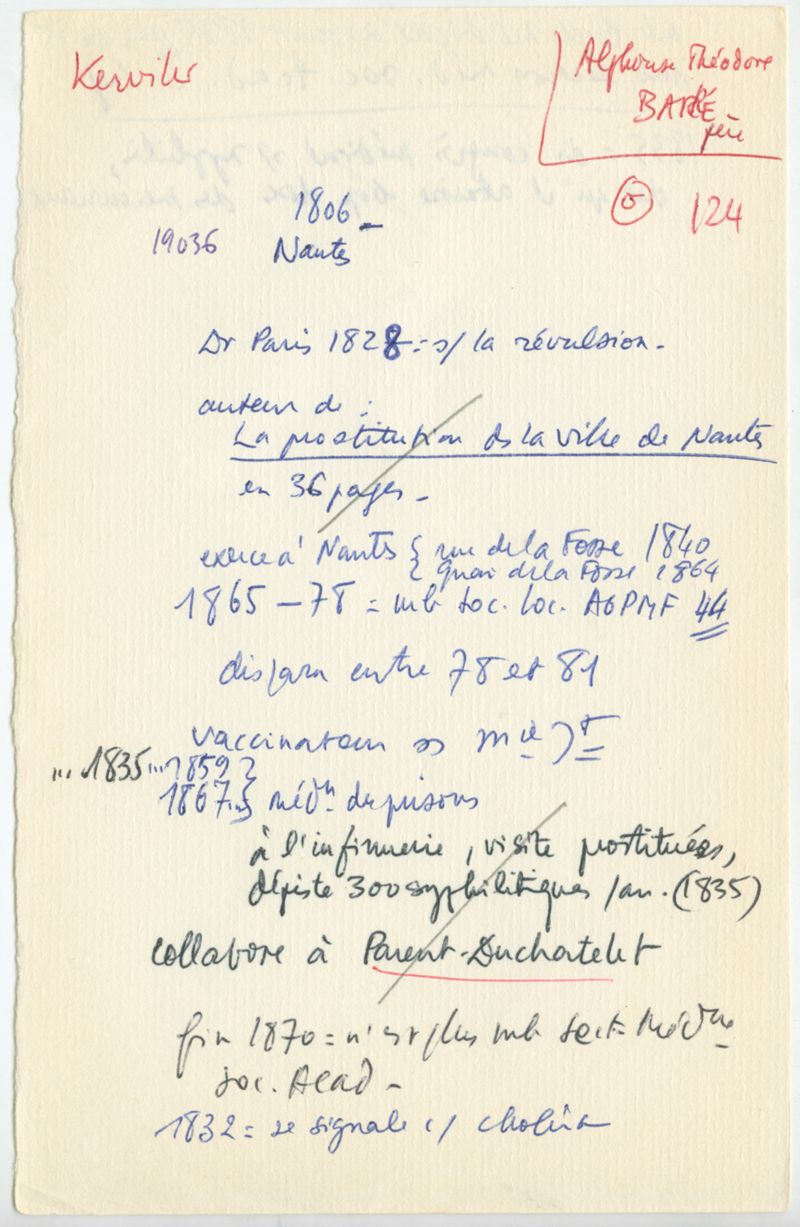 Kerviler
Alphonse Théodore
BARRÉ
père
124
1806 -
19036 Nantes
Dr Paris 1828 = s/ la révulsion -
auteur de :
La prostitution ds la ville de Nantes
en 36 pages -
exerce à Nantes { rue de la Fosse 1840
{ quai de la Fosse 1864
1865 - 78 = mb soc. loc. AGPMF 44
disparu entre 78 et 81
vaccinateur
... 1835 ... 1859 }
1867 ... } médn. des prisons
à l'infirmerie, visite prostituées,
dépiste 300 syphilitiques / an. (1835)
collabore à Parent-Duchatelet
fin 1870 = n'est plus mb sect. Médne
soc. Acad -
1832 = se signale c/ choléra